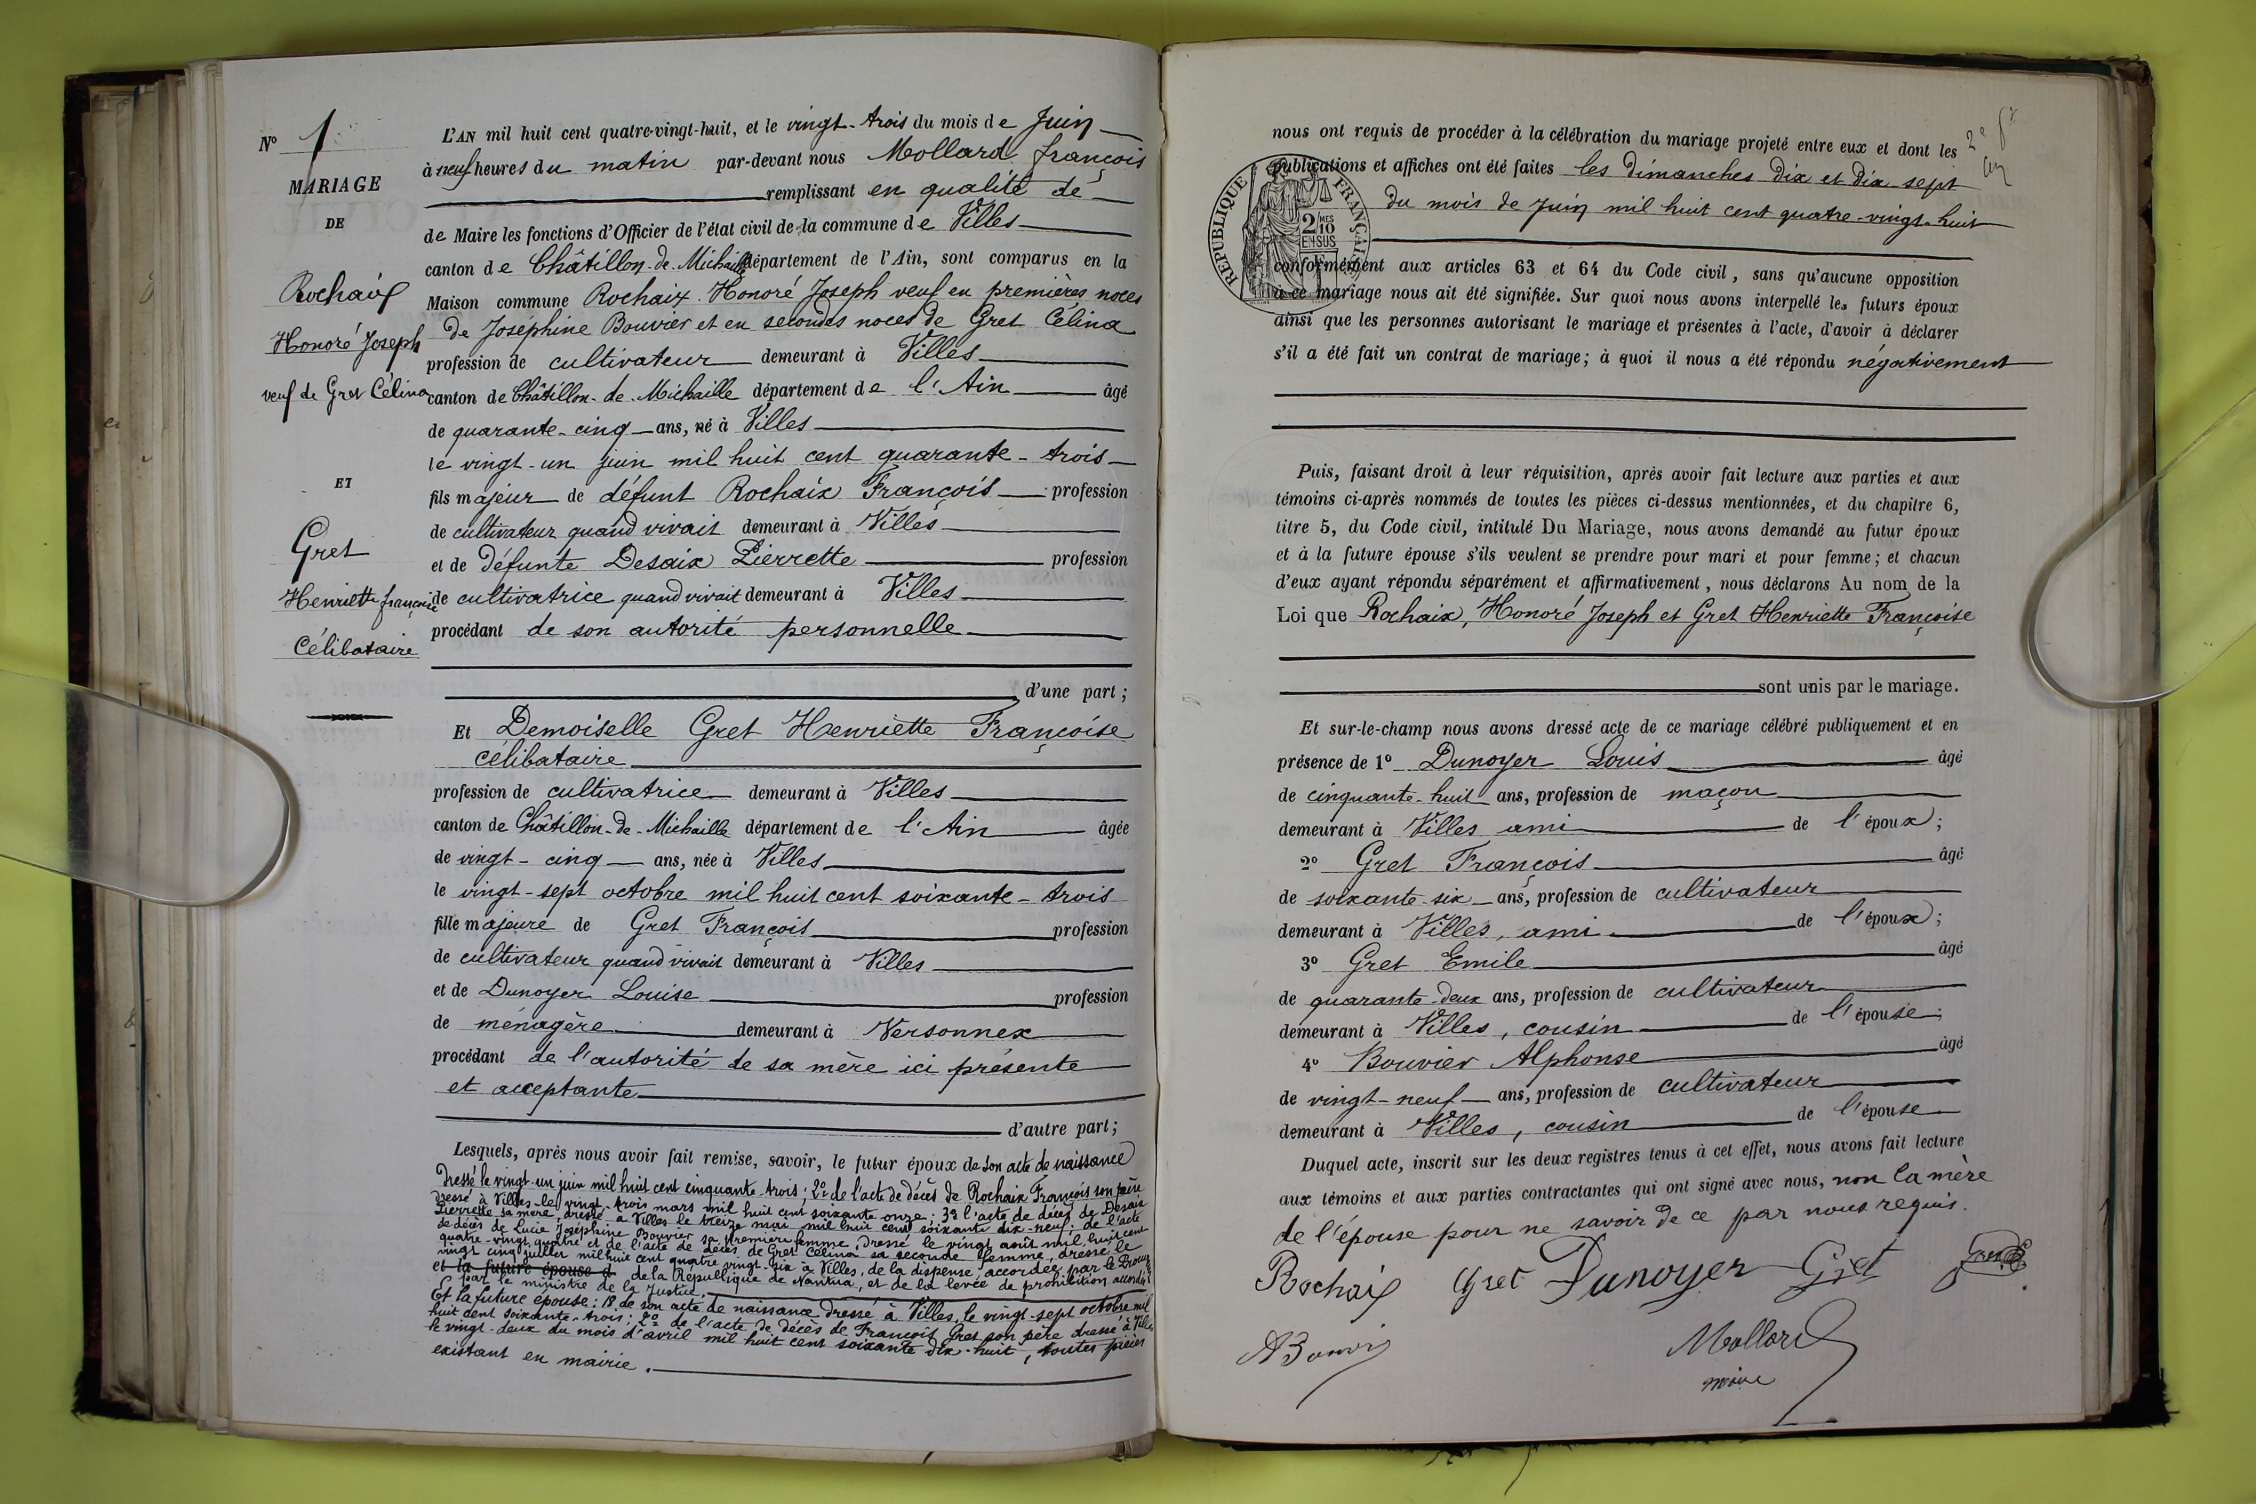 N° 1
MARIAGE
DE
Rochaix
Honoré Joseph
veuf de Gret Célina
ET
Gret
Henriette françoise
Célibataire
L'AN mil huit cent quatre-vingt-huit, et le vingt-trois du mois de Juin
à neuf heures du matin par-devant nous Mollard françois
remplissant en qualité de
de Maire les fonctions d'Officier de l'état civil de la commune de Villes
canton de Châtillon-de-Michaille département de l'Ain, sont comparus en la
Maison commune Rochaix Honoré Joseph veuf en premières noces
de Joséphine Bouvier et en secondes noces de Gret Célina
profession de cultivateur demeurant à Villes
canton de Châtillon-de-Michaille département de l'Ain âgé
de quarante-cinq ans, né à Villes
le vingt-un juin mil huit cent quarante-trois
fils majeur de défunt Rochaix François profession
de cultivateur quand vivait demeurant à Villes
et de défunte Desaix Pierrette profession
de cultivatrice quand vivait demeurant à Villes
procédant de son autorité personnelle
d'une part ;
Et Demoiselle Gret Henriette Françoise
célibataire
profession de cultivatrice demeurant à Villes
canton de Châtillon-de-Michaille département de l'Ain âgée
de vingt-cinq ans, née à Villes
le vingt-sept octobre mil huit cent soixante-trois
fille majeure de Gret François profession
de cultivateur quand vivait demeurant à Villes
et de Dunoyer Louise profession
de ménagère demeurant à Versonnex
procédant de l'autorité de sa mère ici présente
et acceptante
d'autre part ;
Lesquels, après nous avoir fait remise, savoir, le futur époux de son acte de naissance
dressé le vingt-un juin mil huit cent cinquante-trois ; 2° de l'acte de décès de Rochaix François son père
dressé à Villes le vingt-trois mars mil huit cent soixante onze ; 3° l'acte de décès de Desaix
Pierrette sa mère dressé à Villes le treize mai mil huit cent soixante dix-neuf ; de l'acte
de décès de Lucie Joséphine Bouvier sa première femme, dressé le vingt août mil huit cent
quatre-vingt quatre et de l'acte de décès de Gret Célina sa seconde femme, dressé le
vingt cinq juillet mil huit cent quatre vingt-six à Villes, de la dispense accordée par le Procureur
et la future épouse d de la République de Nantua, et de la levée de prohibition accordée
par le ministre de la Justice.
Et la future épouse : 1° de son acte de naissance dressé à Villes, le vingt-sept octobre mil
huit cent soixante-trois ; 2° de l'acte de décès de François Gret son père dressé à Villes
le vingt-deux du mois d'avril mil huit cent soixante dix-huit, toutes pièces
existant en mairie.
nous ont requis de procéder à la célébration du mariage projeté entre eux et dont les
publications et affiches ont été faites les dimanches dix et dix sept
du mois de Juin mil huit cent quatre-vingt-huit
RÉPUBLIQUE FRANÇAISE
2 MES
10
EN SUS
conformément aux articles 63 et 64 du Code civil, sans qu'aucune opposition
à ce mariage nous ait été signifiée. Sur quoi nous avons interpellé les futurs époux
ainsi que les personnes autorisant le mariage et présentes à l'acte, d'avoir à déclarer
s'il a été fait un contrat de mariage ; à quoi il nous a été répondu négativement
Puis, faisant droit à leur réquisition, après avoir fait lecture aux parties et aux
témoins ci-après nommés de toutes les pièces ci-dessus mentionnées, et du chapitre 6,
titre 5, du Code civil, intitulé Du Mariage, nous avons demandé au futur époux
et à la future épouse s'ils veulent se prendre pour mari et pour femme ; et chacun
d'eux ayant répondu séparément et affirmativement, nous déclarons Au nom de la
Loi que Rochaix, Honoré Joseph et Gret Henriette Françoise
sont unis par le mariage.
Et sur-le-champ nous avons dressé acte de ce mariage célébré publiquement et en
présence de 1° Dunoyer Louis âgé
de cinquante-huit ans, profession de maçon
demeurant à Villes ami de l'époux ;
2° Gret François âgé
de soixante-six ans, profession de cultivateur
demeurant à Villes, ami de l'époux ;
3° Gret Emile âgé
de quarante-deux ans, profession de cultivateur
demeurant à Villes, cousin de l'épouse ;
4° Bouvier Alphonse âgé
de vingt-neuf ans, profession de cultivateur
demeurant à Villes, cousin de l'épouse
Duquel acte, inscrit sur les deux registres tenus à cet effet, nous avons fait lecture
aux témoins et aux parties contractantes qui ont signé avec nous, non la mère
de l'épouse pour ne savoir de ce par nous requis.
Rochaix Gret Dunoyer Gret
ABouvier
Mollard
maire